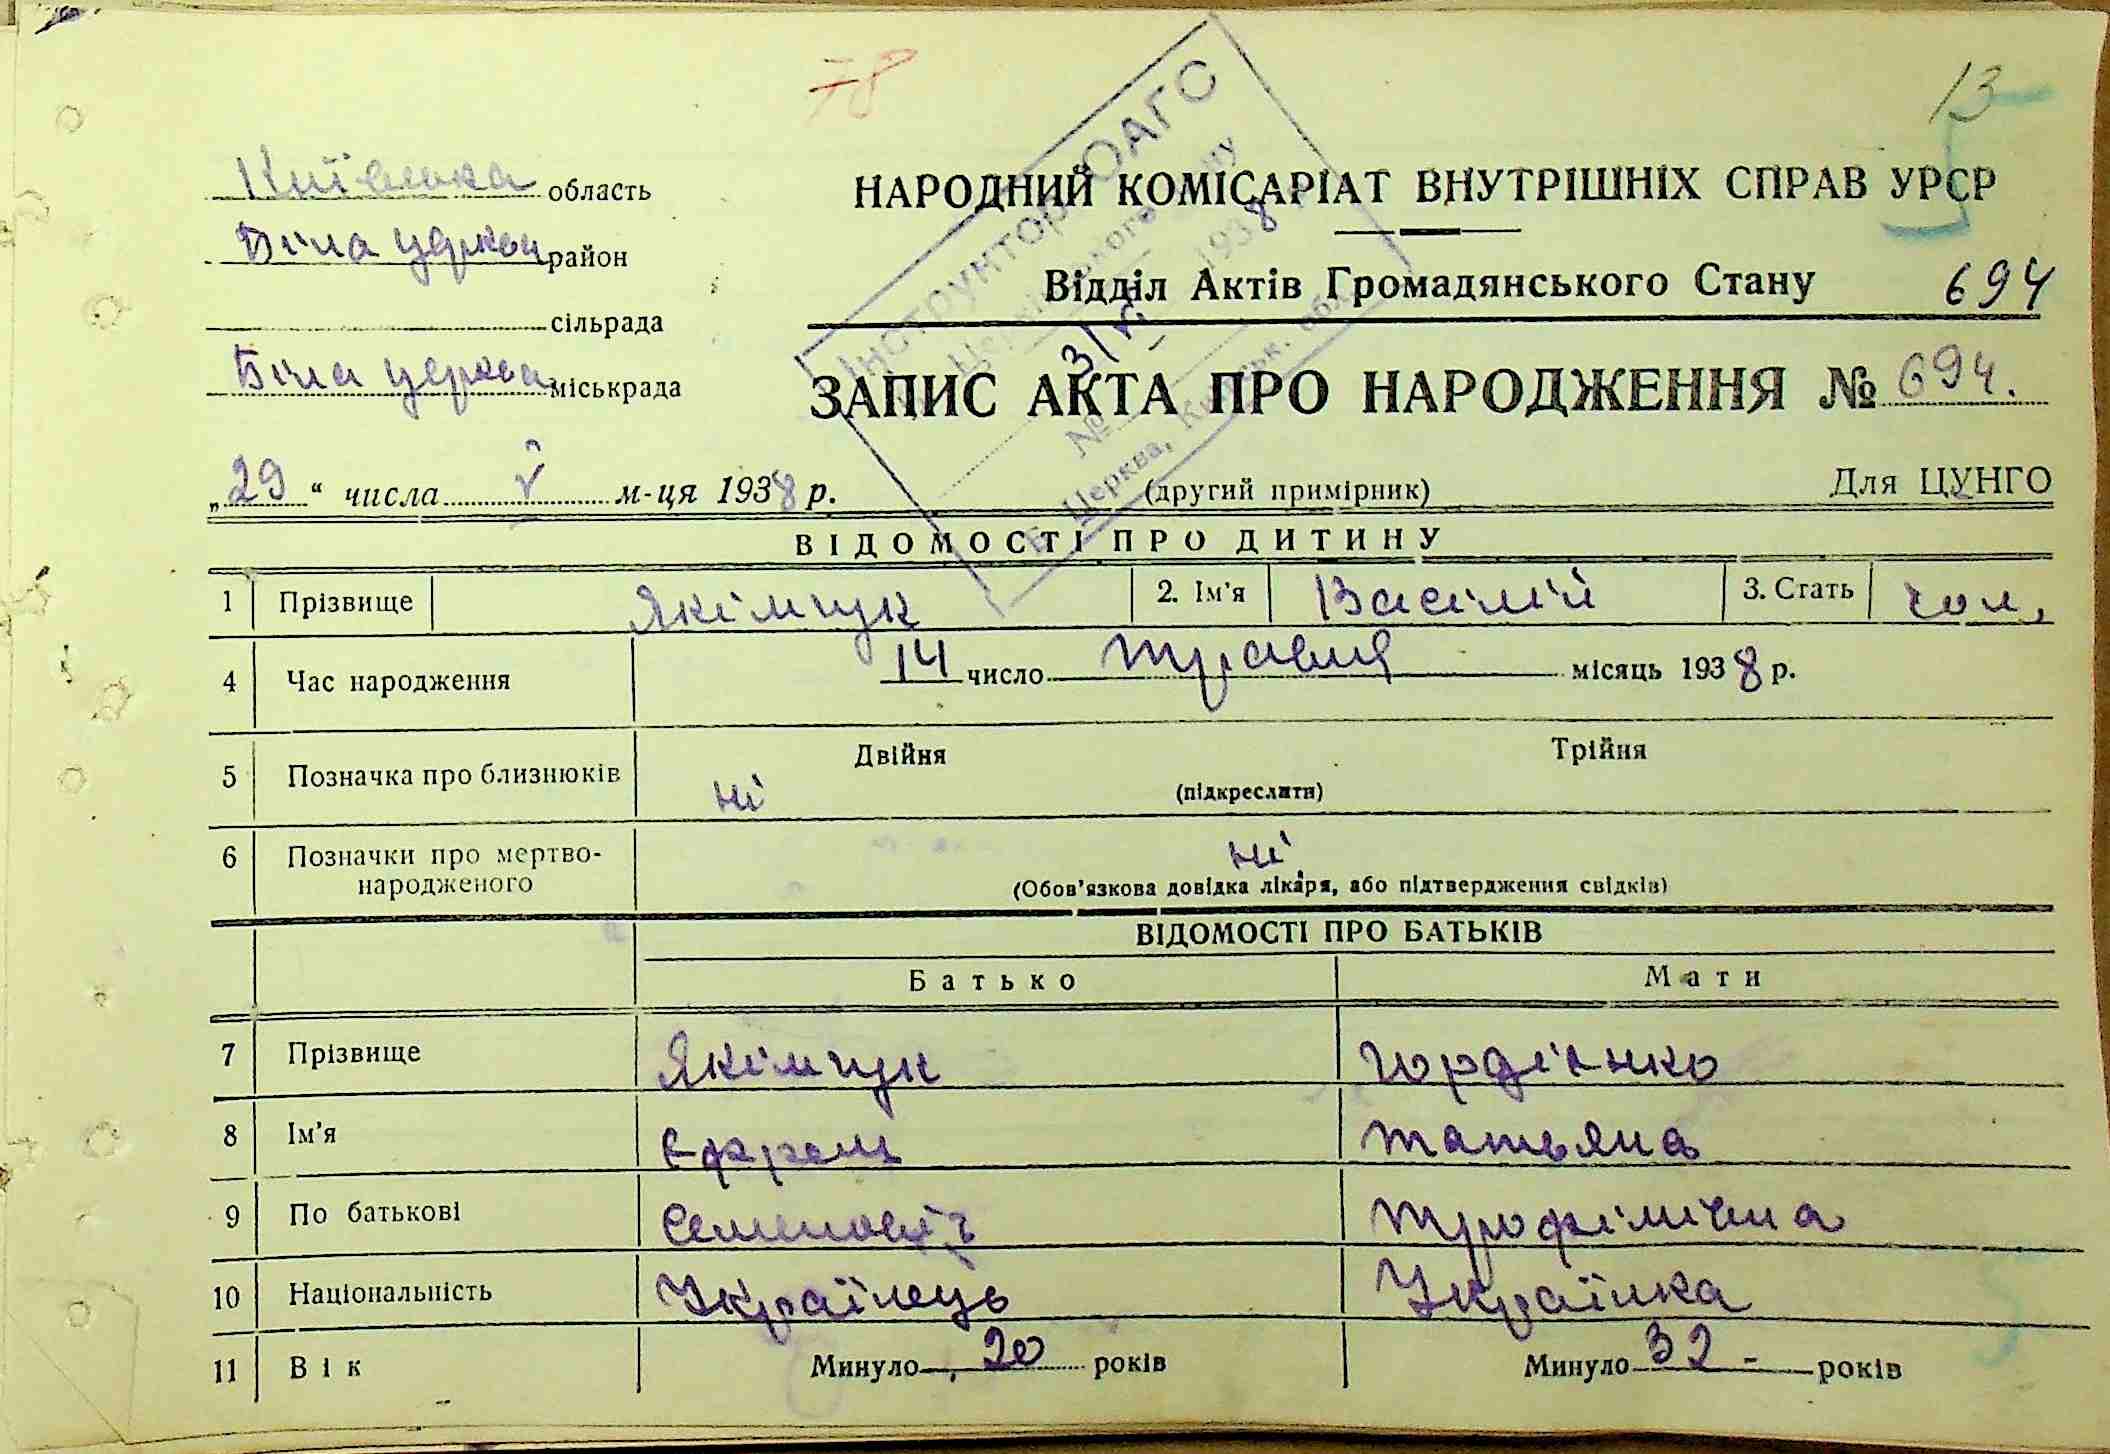 78
13
Київська область
НАРОДНИЙ КОМІСАРІАТ ВНУТРІШНІХ СПРАВ УРСР
Біла церков район
Відділ Актів Громадянського Стану 694
сільрада
Біла церква міськрада
ЗАПИС АКТА ПРО НАРОДЖЕННЯ № 694.
„29“ числа V м-ця 1938 р.
(другий примірник)
Для ЦУНГО
Інструктор ОАГС
1938
№ 3/
Б. Церква, обл.
ВІДОМОСТІ ПРО ДИТИНУ
1 Прізвище Якімчук 2. Ім'я Васілій 3. Стать чол.
4 Час народження 14 число травня місяць 1938 р.
5 Позначка про близнюків ні Двійня Трійня
(підкреслити)
6 Позначки про мертво-
народженого ні
(Обов'язкова довідка лікаря, або підтвердження свідків)
ВІДОМОСТІ ПРО БАТЬКІВ
Батько Мати
7 Прізвище Якімчук Гордієнко
8 Ім'я Єфрем Татьяна
9 По батькові Семеновіч Трофімівна
10 Національність Українець Українка
11 Вік Минуло 20 років Минуло 32 - років